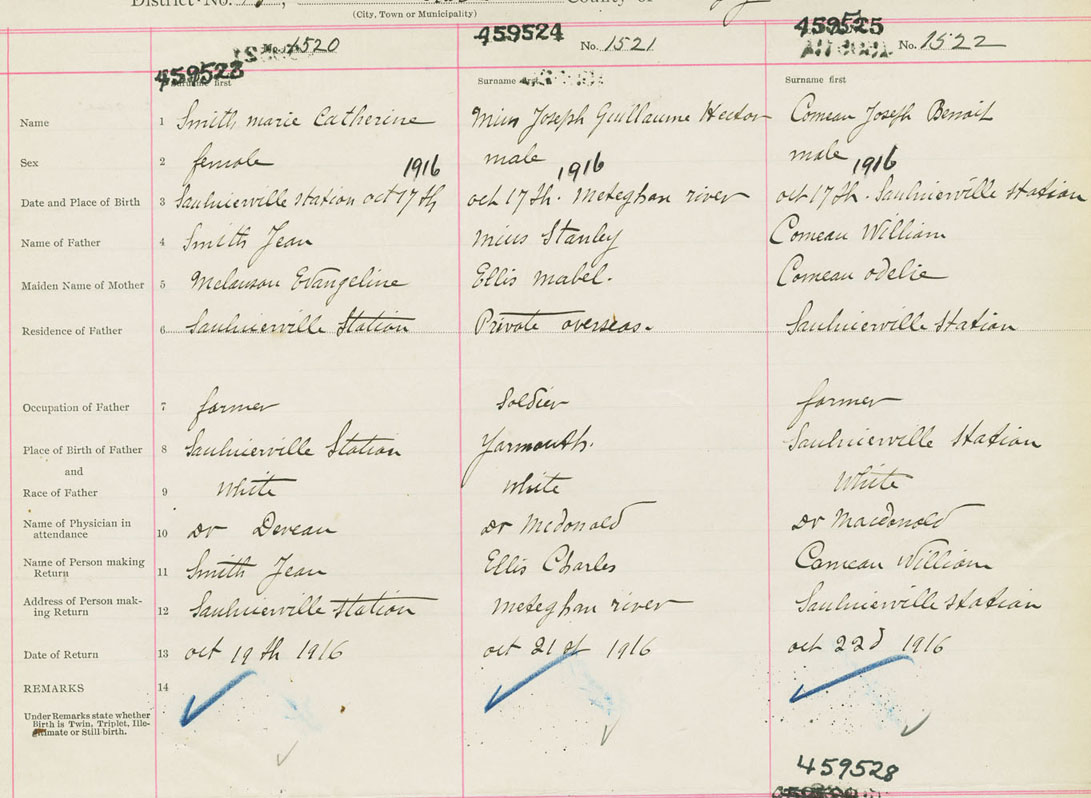 District No.
(City, Town or Municipality)
County of
459523
No. 1520
459524
No. 1521
459525
No. 1522
Surname first
Surname first
Surname first
Name 1 Smith marie Catherine
Mius Joseph Guillaume Hector
Comeau Joseph Benoit
Sex 2 female
male
male
1916
1916
1916
Date and Place of Birth 3 Saulnierville Station oct 17 th
oct 17 th. Meteghan river
oct 17 th. Saulnierville Station
Name of Father 4 Smith Jean
Mius Stanley
Comeau William
Maiden Name of Mother 5 Melanson Evangeline
Ellis Mabel.
Comeau Odelie
Residence of Father 6 Saulnierville Station
Private overseas.
Saulnierville Station
Occupation of Father 7 farmer
Soldier
farmer
Place of Birth of Father 8 Saulnierville Station
Yarmouth.
Saulnierville Station
and
Race of Father 9 White
White
White
Name of Physician in
attendance 10 dr Deveau
dr Mcdonald
dr Macdonald
Name of Person making
Return 11 Smith Jean
Ellis Charles
Comeau William
Address of Person mak-
ing Return 12 Saulnierville Station
meteghan river
Saulnierville Station
Date of Return 13 oct 19 th 1916
oct 21 st 1916
oct 22d 1916
REMARKS 14
Under Remarks state whether
Birth is Twin, Triplet, Ille-
gitimate or Still birth.
459528